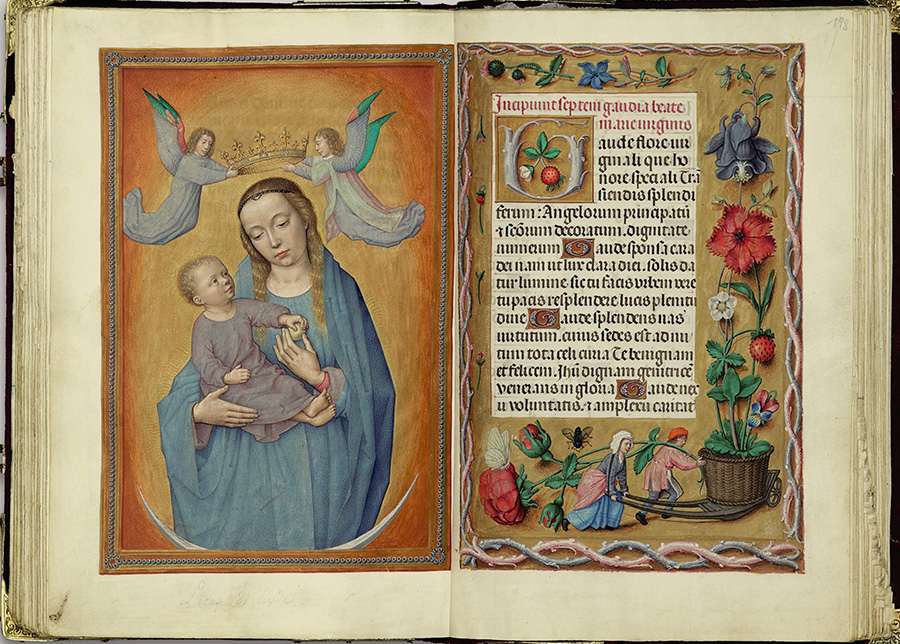 Incipiunt septem gaudia beate
marie uirginis
Gaude flore uir
ginali que ho
nore speciali Tra
sciendis splendi
ferum : Angelorum principatū
& scōrum decoratum . dignitate
numerum Gaude sponsa cara
dei nam ut lux clara diei . solis da
tur lumine . sic tu facis vrbem vere
tu pacis resplendere lucis plenitu
dine Gaude splendens uas
uirtutum . cuius sedes est ad nu
tum tota celi curia Te benignam
et felicem . Jhū dignam genitricē
venerans in gloria Gaude nex
u voluntatis . & amplexu caritat